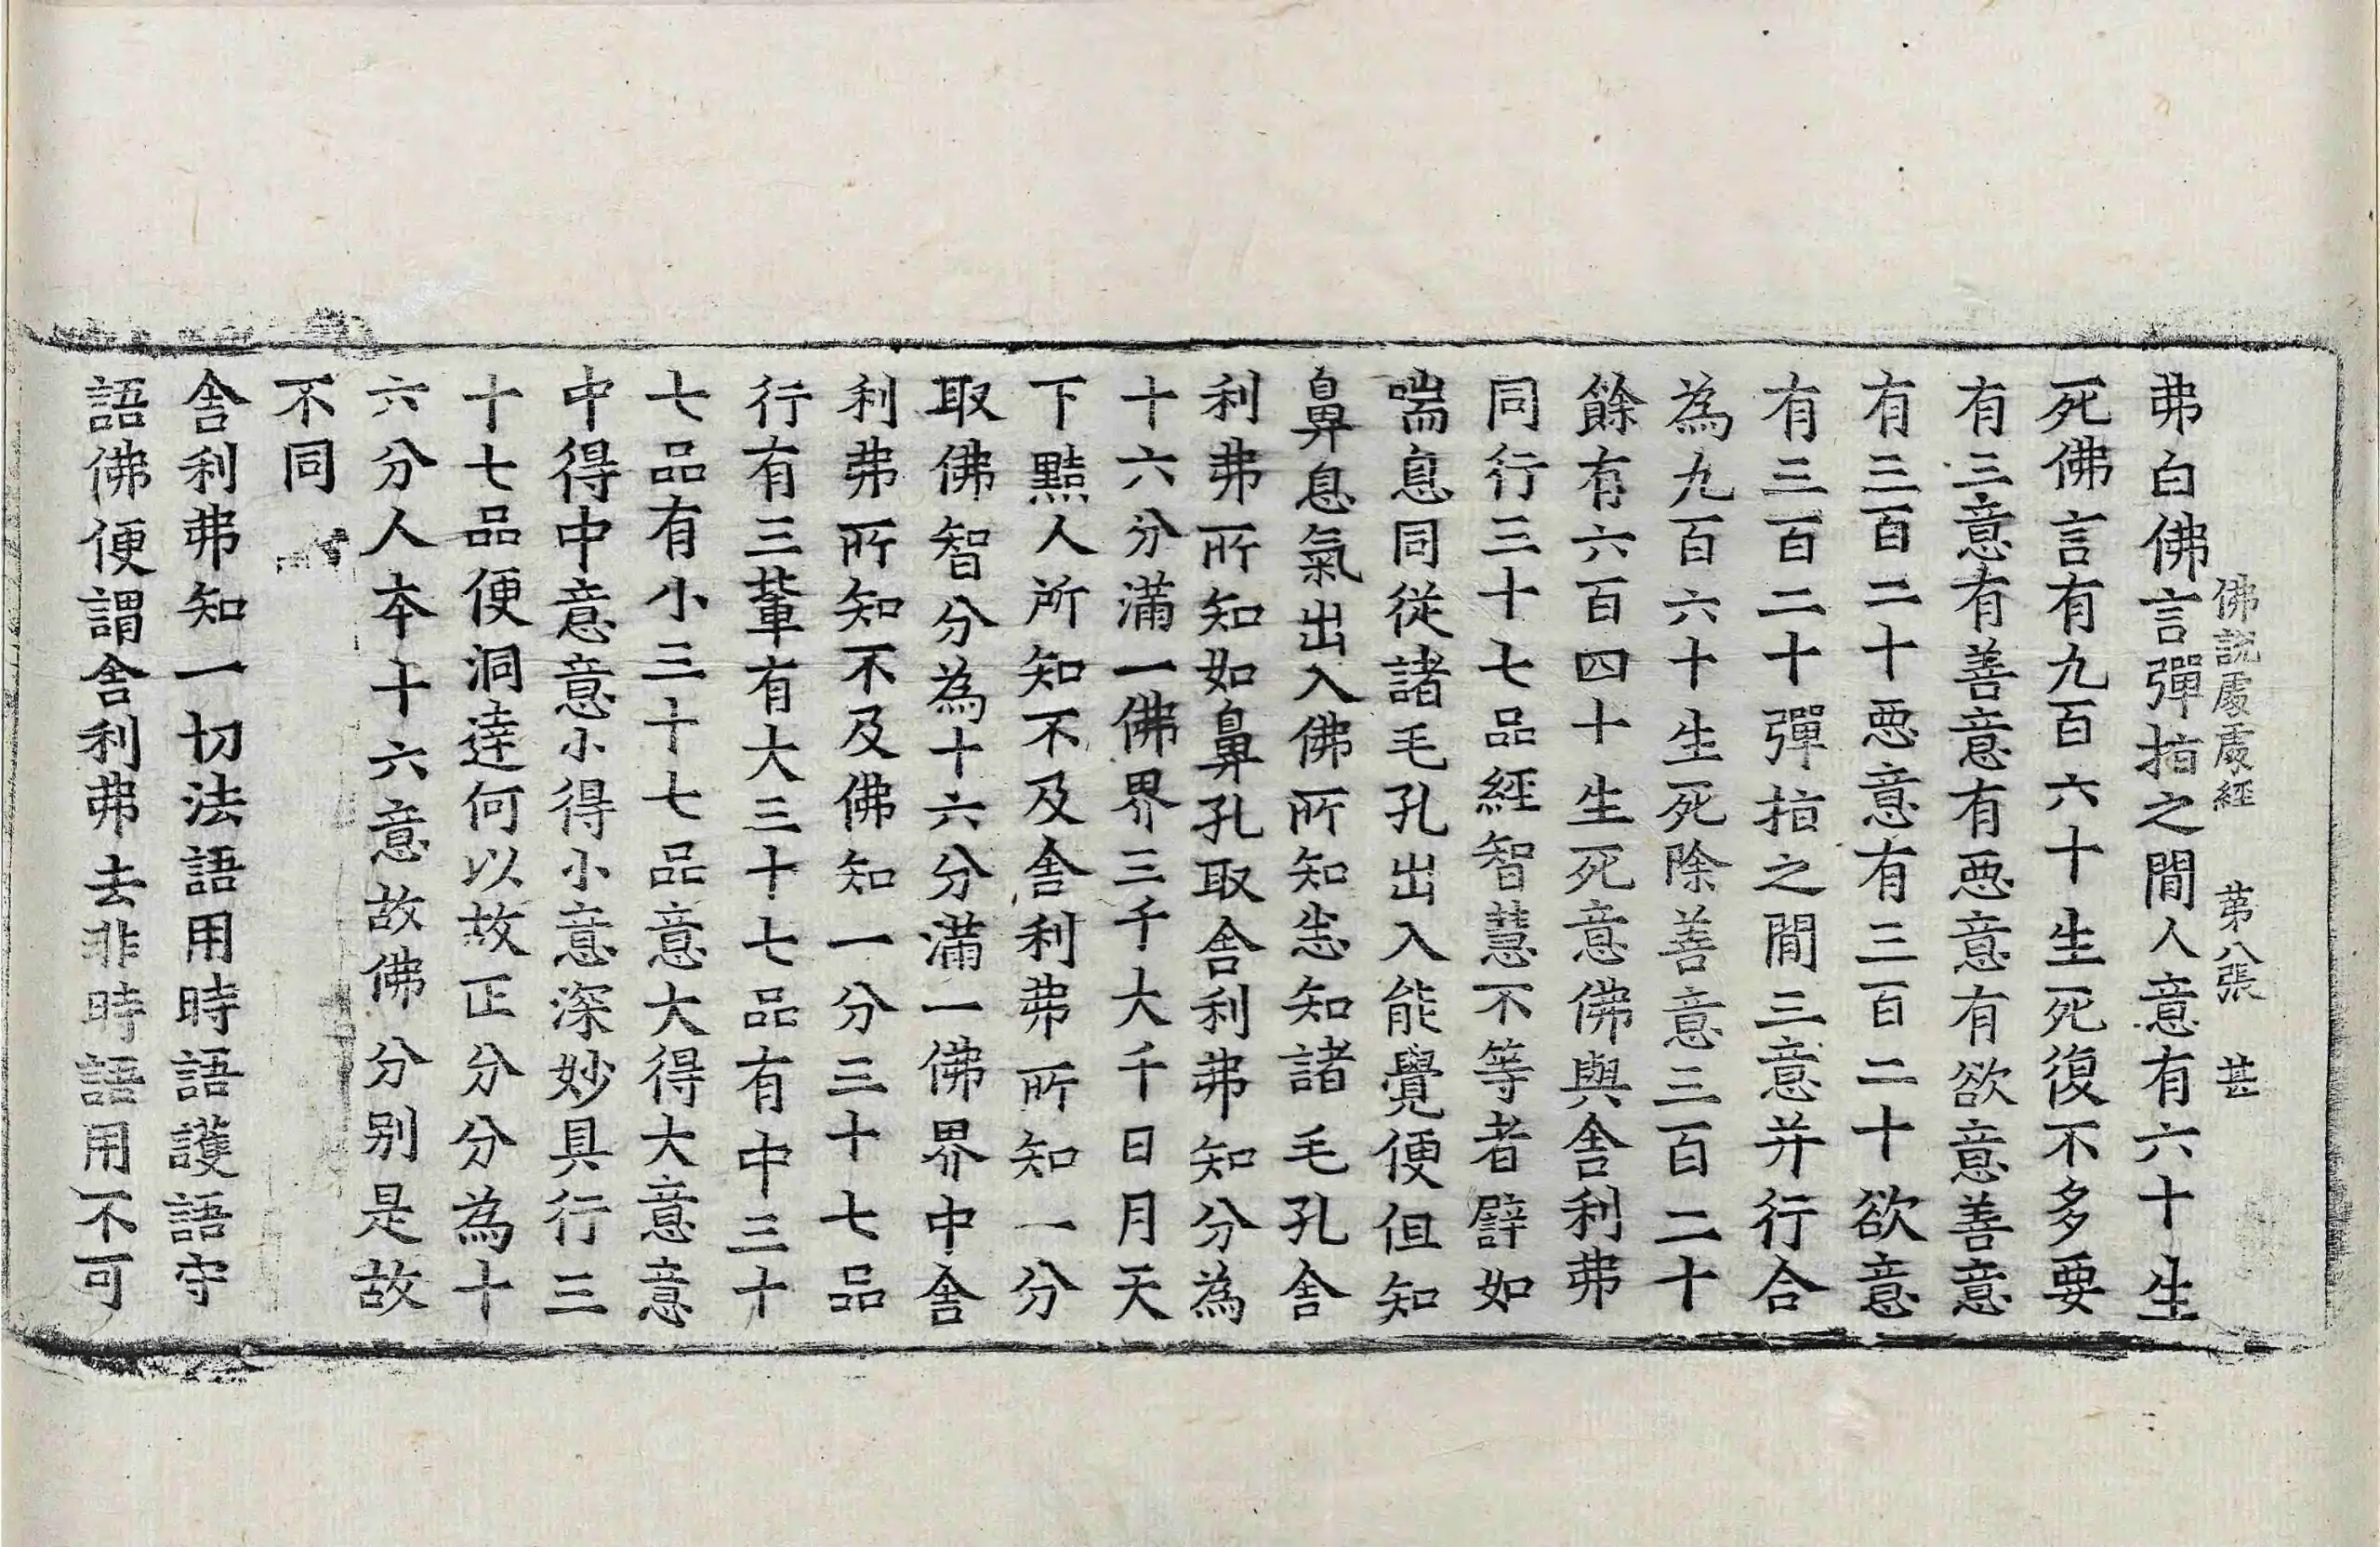 佛說處處經 第八張 甚
弗白佛言彈指之間人意有六十生
死佛言有九百六十生死復不多要
有三意有善意有惡意有欲意善意
有三百二十惡意有三百二十欲意
有三百二十彈指之間三意并行合
為九百六十生死除善意三百二十
餘有六百四十生死意佛與舍利弗
同行三十七品經智慧不等者譬如
喘息同從諸毛孔出入能覺便但知
鼻息氣出入佛所知悉知諸毛孔舍
利弗所知如鼻孔取舍利弗知分為
十六分滿一佛界三千大千日月天
下黠人所知不及舍利弗所知一分
取佛智分為十六分滿一佛界中舍
利弗所知不及佛知一分三十七品
行有三輩有大三十七品有中三十
七品有小三十七品意大得大意意
中得中意意小得小意深妙具行三
十七品便洞達何以故正分分為十
六分人本十六意故佛分別是故
不同
舍利弗知一切法語用時語護語守
語佛便謂舍利弗去非時語用不可